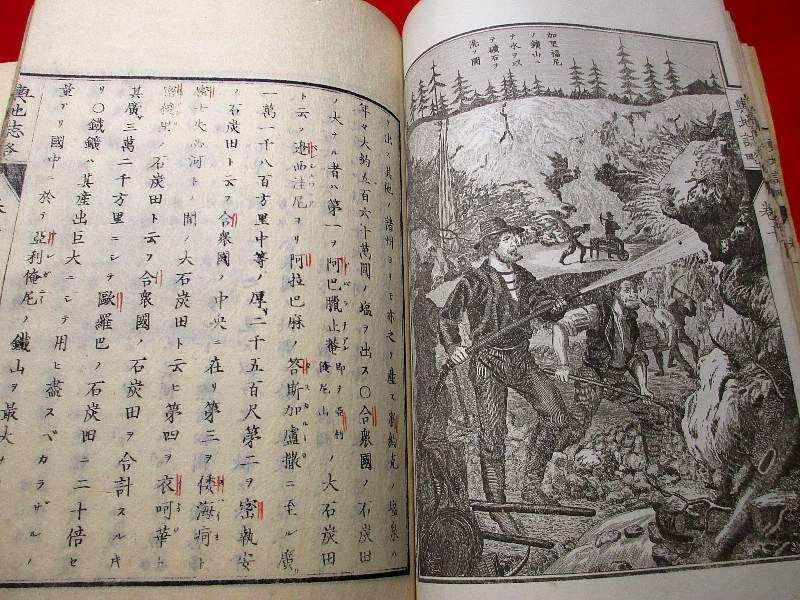 加里福尼
ノ鑛山ニ
テ水ヲ以
テ礦石ヲ
洗フ圖
ヲ出ス其他ノ諸州ヨリモ亦之ヲ産ス
ノ塩泉ハ
年々大約五百六十萬圓ノ塩ヲ出ス〇合衆國ノ石炭田
ノ大ナル者ハ第一ヲ阿巴臘止菴
ノ大石炭田
ト云フ
西洼尼ヨリ阿拉巴麻ノ答斯加盧撒ニ至ル廣
一萬一千八百方里中等ノ厚二十五百尺第二ヲ密執安
ノ石炭田ト云フ合衆國ノ中央ニ在リ第三ヲ倭海
ト
河トノ間ノ大石炭田ト云ヒ第四ヲ衣呵華ト
ノ石炭田ト云フ合衆國ノ石炭田ヲ合計スルキ
其廣三萬二千方里ニシテ歐羅巴ノ石炭田ニ二十倍セ
リ〇鐵鑛ハ其産出巨大ニシテ用ヒ盡スベカラザルノ
量ナリ國中ニ於テ亞利俺尼ノ鐵山ヲ最大トス
輿地志畧